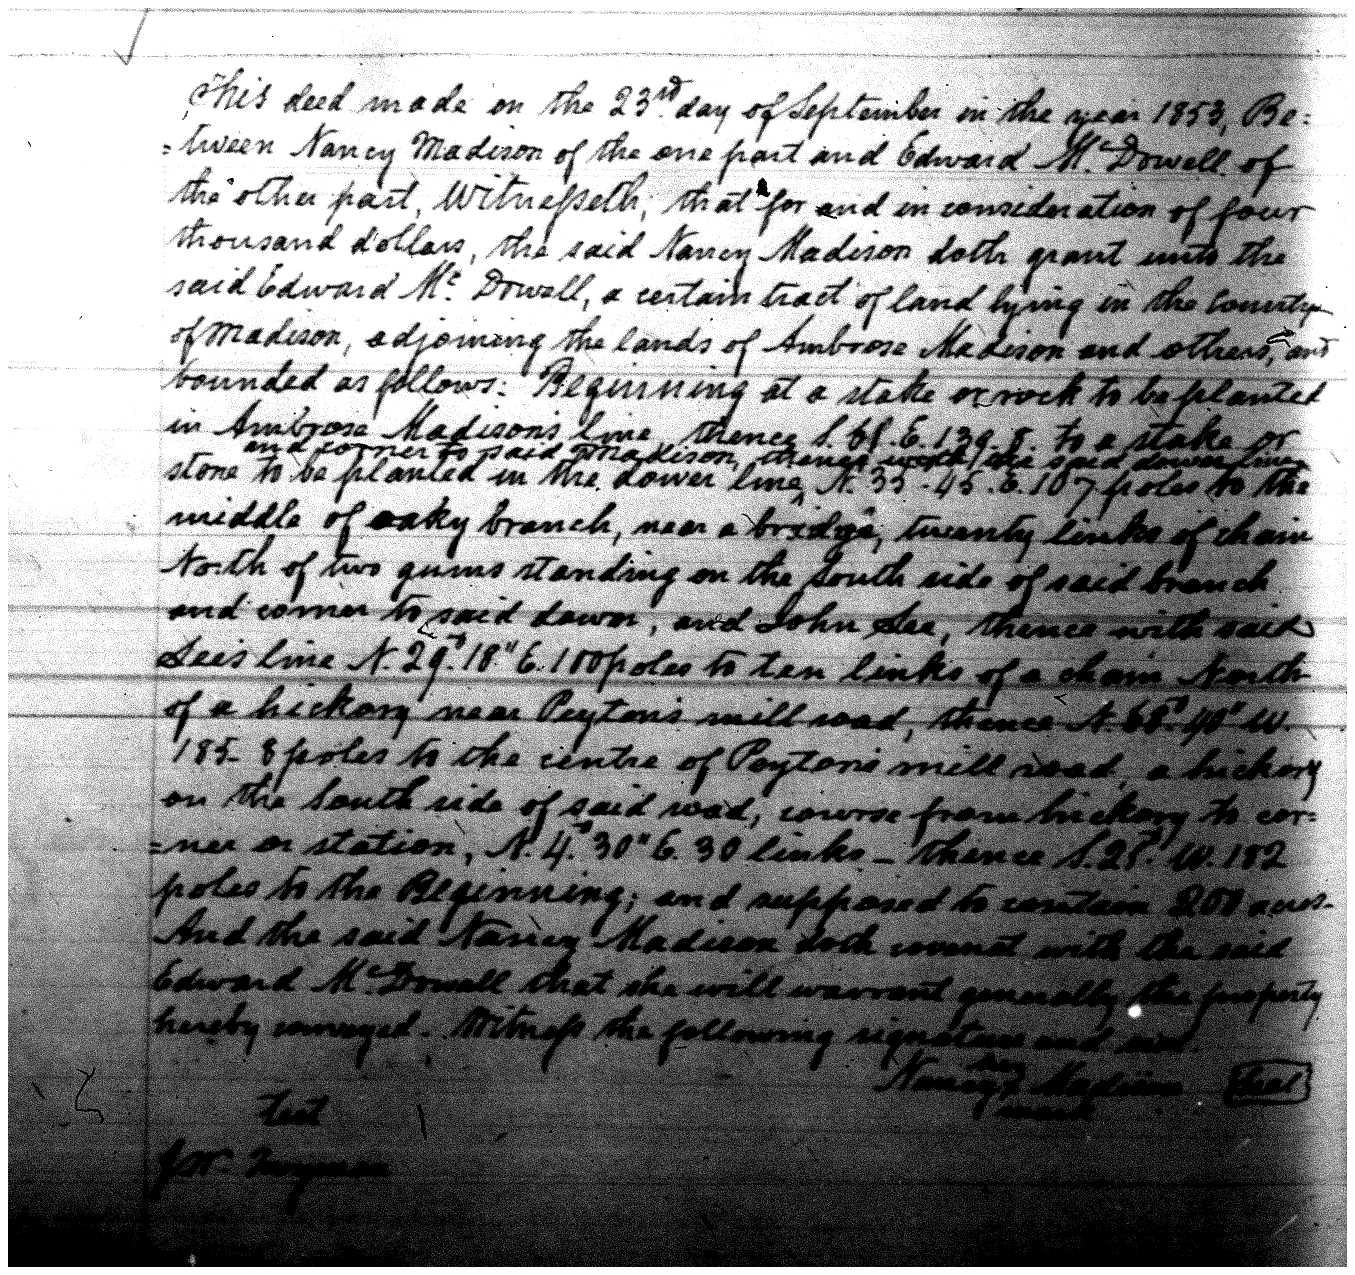 This deed made on the 23rd day of September in the year 1853, Be=
=tween Nancy Madison of the one part and Edward McDowell of
the other part, Witnesseth; that for and in consideration of four
thousand dollars, the said Nancy Madison doth grant unto the
said Edward Mc Dowell, a certain tract of land lying in the County
of Madison, adjoining the lands of Ambrose Madison and others, and
bounded as follows: Beginning at a stake or rock to be planted
in Ambrose Madison's line, thence S. 61. E. 139. 8. to a stake or
and corner to said Madison, thence with the said dower line
stone to be planted in the dower line, N. 33 - 45. E. 107 poles to the
middle of oaky branch, near a bridge, twenty links of chain
North of two gums standing on the South side of said branch
and corner to said dower, and John See, thence with said
See's line N. 29. 18" E. 100 poles to ten links of a chain North
of a hickory near Peyton's mill road, thence N. 68. 40" W.
185- 8 poles to the centre of Peyton's mill road, a hickory
on the South side of said road, course from hickory to cor=
=ner or station, N. 4. 30" E. 30 links - thence S. 28. W. 182
poles to the Beginning; and supposed to contain 200 acres-
And the said Nancy Madison doth covenant with the said
Edward McDowell that she will warrant generally the property
hereby conveyed. Witness the following signature and seal.
her
Nancy X Madison Seal
mark
Test
J W.